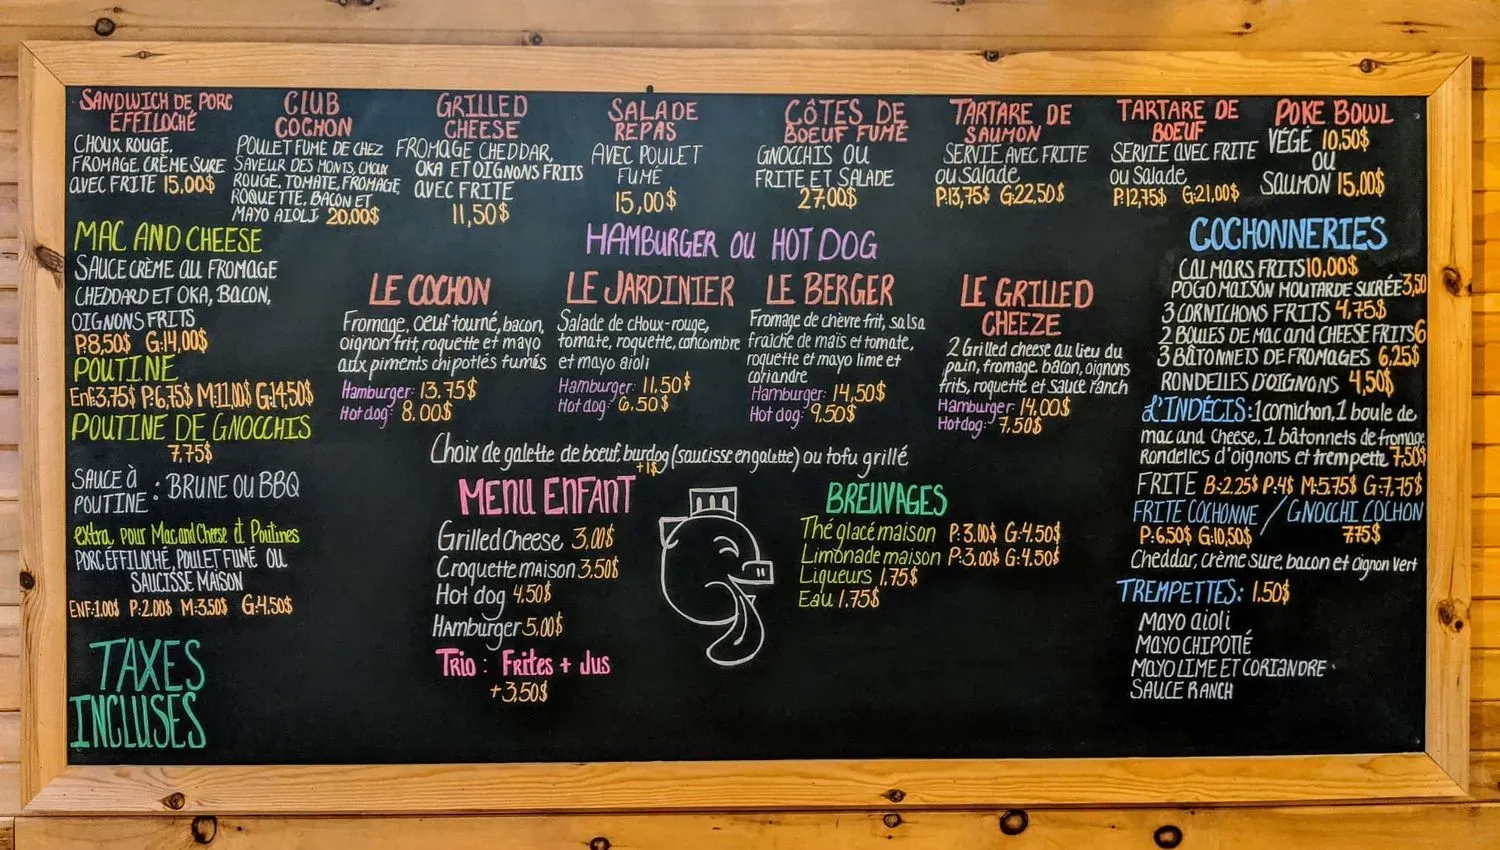 SANDWICH DE PORC
ÉFFILOCHÉ
CHOUX ROUGE,
FROMAGE, CRÈME SURE
AVEC FRITE 15,00$
CLUB
COCHON
POULET FUMÉ DE CHEZ
SAVEUR DES MONTS, CHOUX
ROUGE, TOMATE, FROMAGE
ROQUETTE, BACON ET
MAYO AIOLI 20,00$
GRILLED
CHEESE
FROMAGE CHEDDAR,
OKA ET OIGNONS FRITS
AVEC FRITE
11,50$
SALADE
REPAS
AVEC POULET
FUMÉ
15,00$
CÔTES DE
BOEUF FUMÉ
GNOCCHIS OU
FRITE ET SALADE
27,00$
TARTARE DE
SAUMON
SERVIE AVEC FRITE
ou Salade
P:13,75$ G:22,50$
TARTARE DE
BOEUF
SERVIE AVEC FRITE
ou Salade
P:12,75$ G:21,00$
POKE BOWL
VÉGÉ 10,50$
OU
SAUMON 15,00$
MAC AND CHEESE
SAUCE CRÈME AU FROMAGE
CHEDDARD ET OKA, BACON,
OIGNONS FRITS
P:8,50$ G:14,00$
POUTINE
Enf:3,75$ P:6,75$ M:11,00$ G:14,50$
POUTINE DE GNOCCHIS
7,75$
SAUCE À
POUTINE : BRUNE OU BBQ
extra pour Mac and Cheese et Poutines
PORC ÉFFILOCHÉ, POULET FUMÉ OU
SAUCISSE MAISON
ENF:1.00$ P:2.00$ M:3.50$ G:4.50$
TAXES
INCLUSES
HAMBURGER OU HOT DOG
LE COCHON
Fromage, oeuf tourné, bacon,
oignon frit, roquette et mayo
aux piments chipotlés fumés
Hamburger: 13.75$
Hot dog: 8.00$
LE JARDINIER
Salade de choux-rouge,
tomate, roquette, concombre
et mayo aioli
Hamburger: 11.50$
Hot dog: 6.50$
LE BERGER
Fromage de chèvre frit, salsa
fraîche de maïs et tomate,
roquette et mayo lime et
coriandre
Hamburger: 14,50$
Hot dog: 9.50$
LE GRILLED
CHEEZE
2 Grilled cheese au lieu du
pain, fromage, bacon, oignons
frits, roquette et sauce ranch
Hamburger: 14,00$
Hotdog: 7,50$
Choix de galette de boeuf, burdog (saucisse en galette) ou tofu grillé
+1$
MENU ENFANT
Grilled Cheese 3,00$
Croquette maison 3,50$
Hot dog 4,50$
Hamburger 5,00$
Trio : Frites + Jus
+3,50$
BREUVAGES
Thé glacé maison P:3.00$ G:4.50$
Limonade maison P:3.00$ G:4.50$
Liqueurs 1,75$
Eau 1.75$
COCHONNERIES
CALMARS FRITS 10,00$
POGO MAISON MOUTARDE SUCRÉE 3,50
3 CORNICHONS FRITS 4,75$
2 BOULES DE MAC and CHEESE FRITS 6
3 BÂTONNETS DE FROMAGES 6,25$
RONDELLES D'OIGNONS 4,50$
L'INDÉCIS: 1 cornichon, 1 boule de
mac and cheese, 1 bâtonnets de fromage,
Rondelles d'oignons et trempette 7,50$
FRITE B:2.25$ P:4$ M:5.75$ G:7,75$
FRITE COCHONNE / GNOCCHI COCHON
P:6,50$ G:10,50$ 7.75$
Cheddar, crème sure, bacon et oignon vert
TREMPETTES: 1.50$
MAYO aioli
MAYO CHIPOTLÉ
MAYO LIME ET CORIANDRE
SAUCE RANCH